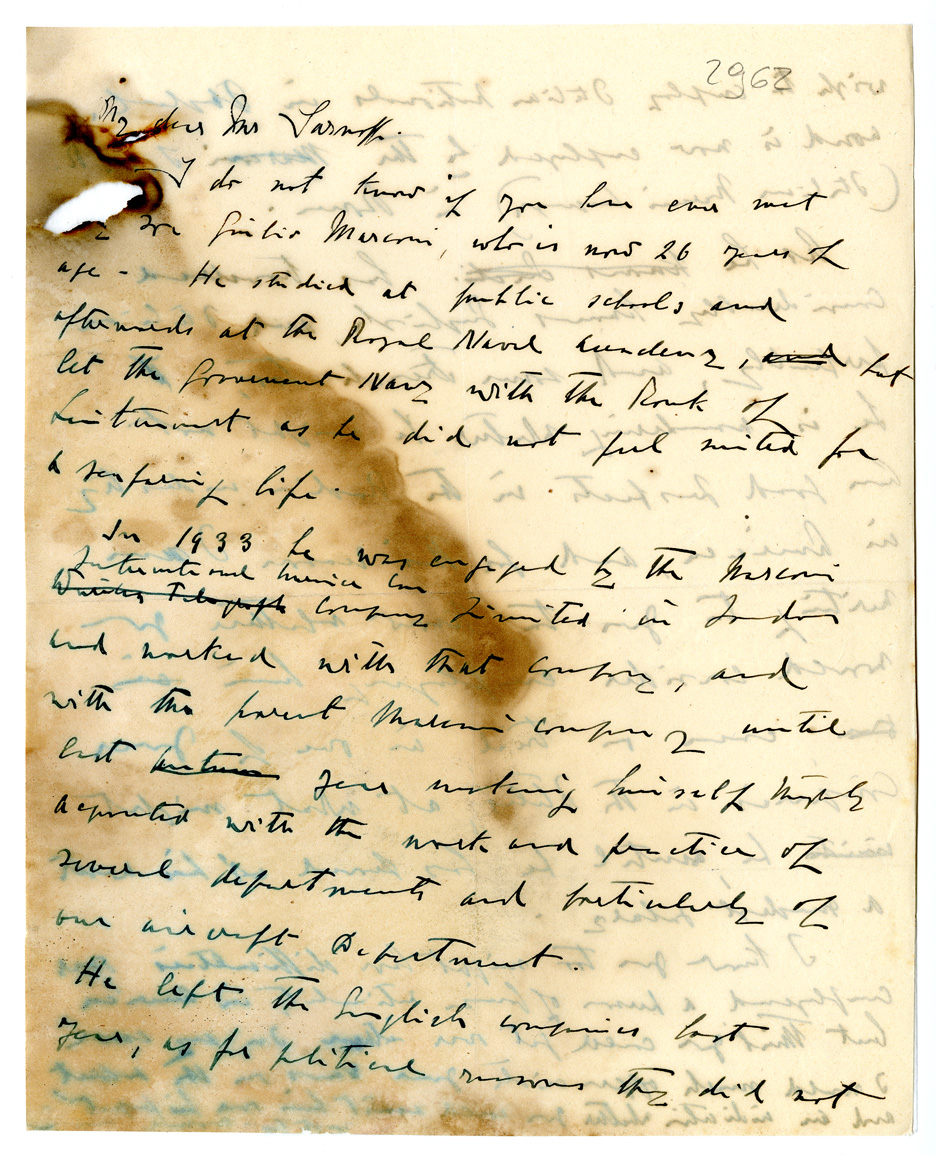 2962
My dear Mr Sarnoff.
I do not know if you have ever met
my son Giulio Marconi, who is now 26 years of
age - He studied at public schools and
afterwards at the Royal Naval academy, and but
let the Goverment Navy with the Rank of
Lieutenant as he did not feel suited for
a seafaring life.
In 1933 he was engaged by the Marconi
International Marine Com
Wireless Telegraph Company Limited in London
and worked with that company, and
with the parent Marconi company until
last autumn year making himself highly
with the work and practice of
several departments and particularly of
our aircraft Department.
He left the English companies last
year, as for political reasons they did not